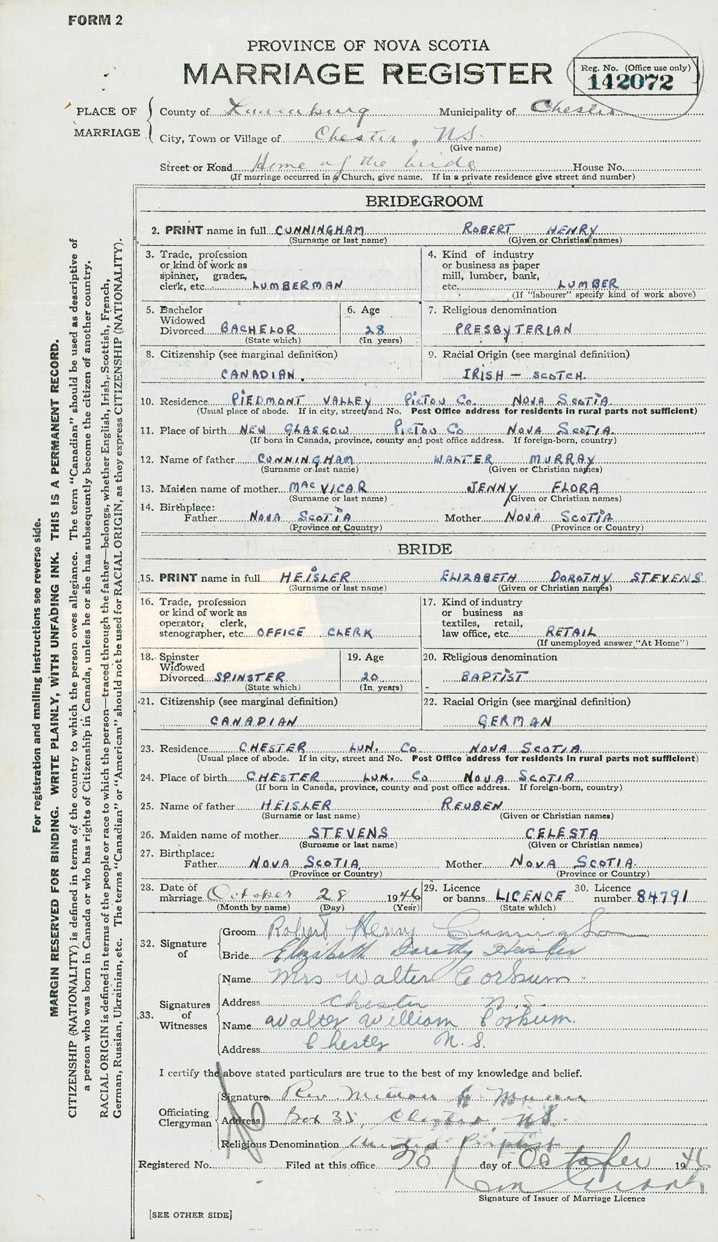 FORM 2
PROVINCE OF NOVA SCOTIA
MARRIAGE REGISTER
Reg. No. (Office use only)
142072
PLACE OF MARRIAGE
County of Lunenburg Municipality of Chester
City, Town or Village of Chester, N.S.
(Give name)
Street or Road Home of the bride House No.
(If marriage occurred in a Church, give name. If in a private residence give street and number)
BRIDEGROOM
2. PRINT name in full CUNNINGHAM ROBERT HENRY
(Surname or last name) (Given or Christian names)
3. Trade, profession or kind of work as spinner, grader, clerk, etc. LUMBERMAN
4. Kind of industry or business as paper mill, lumber, bank, etc. LUMBER
(If "labourer" specify kind of work above)
5. Bachelor Widowed Divorced BACHELOR
(State which)
6. Age 28
(In years)
7. Religious denomination
PRESBYTERIAN
8. Citizenship (see marginal definition)
CANADIAN.
9. Racial Origin (see marginal definition)
IRISH - SCOTCH.
10. Residence PIEDMONT VALLEY PICTOU CO. NOVA SCOTIA
(Usual place of abode. If in city, street and No. Post Office address for residents in rural parts not sufficient)
11. Place of birth NEW GLASGOW PICTOU CO. NOVA SCOTIA.
(If born in Canada, province, county and post office address. If foreign-born, country)
12. Name of father CUNNINGHAM WALTER MURRAY
(Surname or last name) (Given or Christian names)
13. Maiden name of mother MacVICAR JENNY FLORA
(Surname or last name) (Given or Christian names)
14. Birthplace:
Father NOVA SCOTIA Mother NOVA SCOTIA
(Province or Country) (Province or Country)
BRIDE
15. PRINT name in full HEISLER ELIZABETH DOROTHY STEVENS
(Surname or last name) (Given or Christian names)
16. Trade, profession or kind of work as operator, clerk, stenographer, etc. OFFICE CLERK
17. Kind of industry or business as textiles, retail, law office, etc. RETAIL
(If unemployed answer "At Home")
18. Spinster Widowed Divorced SPINSTER
(State which)
19. Age 20
(In years)
20. Religious denomination
BAPTIST
21. Citizenship (see marginal definition)
CANADIAN
22. Racial Origin (see marginal definition)
GERMAN
23. Residence CHESTER LUN. CO NOVA SCOTIA
(Usual place of abode. If in city, street and No. Post Office address for residents in rural parts not sufficient)
24. Place of birth CHESTER LUN. CO NOVA SCOTIA
(If born in Canada, province, county and post office address. If foreign-born, country)
25. Name of father HEISLER REUBEN
(Surname or last name) (Given or Christian names)
26. Maiden name of mother STEVENS CELESTA
(Surname or last name) (Given or Christian names)
27. Birthplace:
Father NOVA SCOTIA Mother NOVA SCOTIA
(Province or Country) (Province or Country)
28. Date of marriage October 28 1946
(Month by name) (Day) (Year)
29. Licence or banns LICENCE
(State which)
30. Licence number 84791
32. Signature of
Groom Robert Henry Cunningham
Bride Elizabeth Dorothy Heisler
33. Signatures of Witnesses
Name Mrs Walter Corkum
Address Chester N.S.
Name Walter William Corkum.
Address Chester N.S.
I certify the above stated particulars are true to the best of my knowledge and belief.
Officiating Clergyman
Signature Rev.
Address Box 35, Chester, N.S.
Religious Denomination United Baptist
Registered No. Filed at this office day of October 1946
Signature of Issuer of Marriage Licence
[SEE OTHER SIDE]
For registration and mailing instructions see reverse side.
MARGIN RESERVED FOR BINDING. WRITE PLAINLY, WITH UNFADING INK. THIS IS A PERMANENT RECORD.
CITIZENSHIP (NATIONALITY) is defined in terms of the country to which the person owes allegiance. The term "Canadian" should be used as descriptive of
a person who was born in Canada or who has rights of Citizenship in Canada, unless he or she has subsequently become the citizen of another country.
RACIAL ORIGIN is defined in terms of the people or race to which the person—traced through the father—belongs, whether English, Irish, Scottish, French,
German, Russian, Ukrainian, etc. The terms "Canadian" or "American" should not be used for RACIAL ORIGIN, as they express CITIZENSHIP (NATIONALITY).